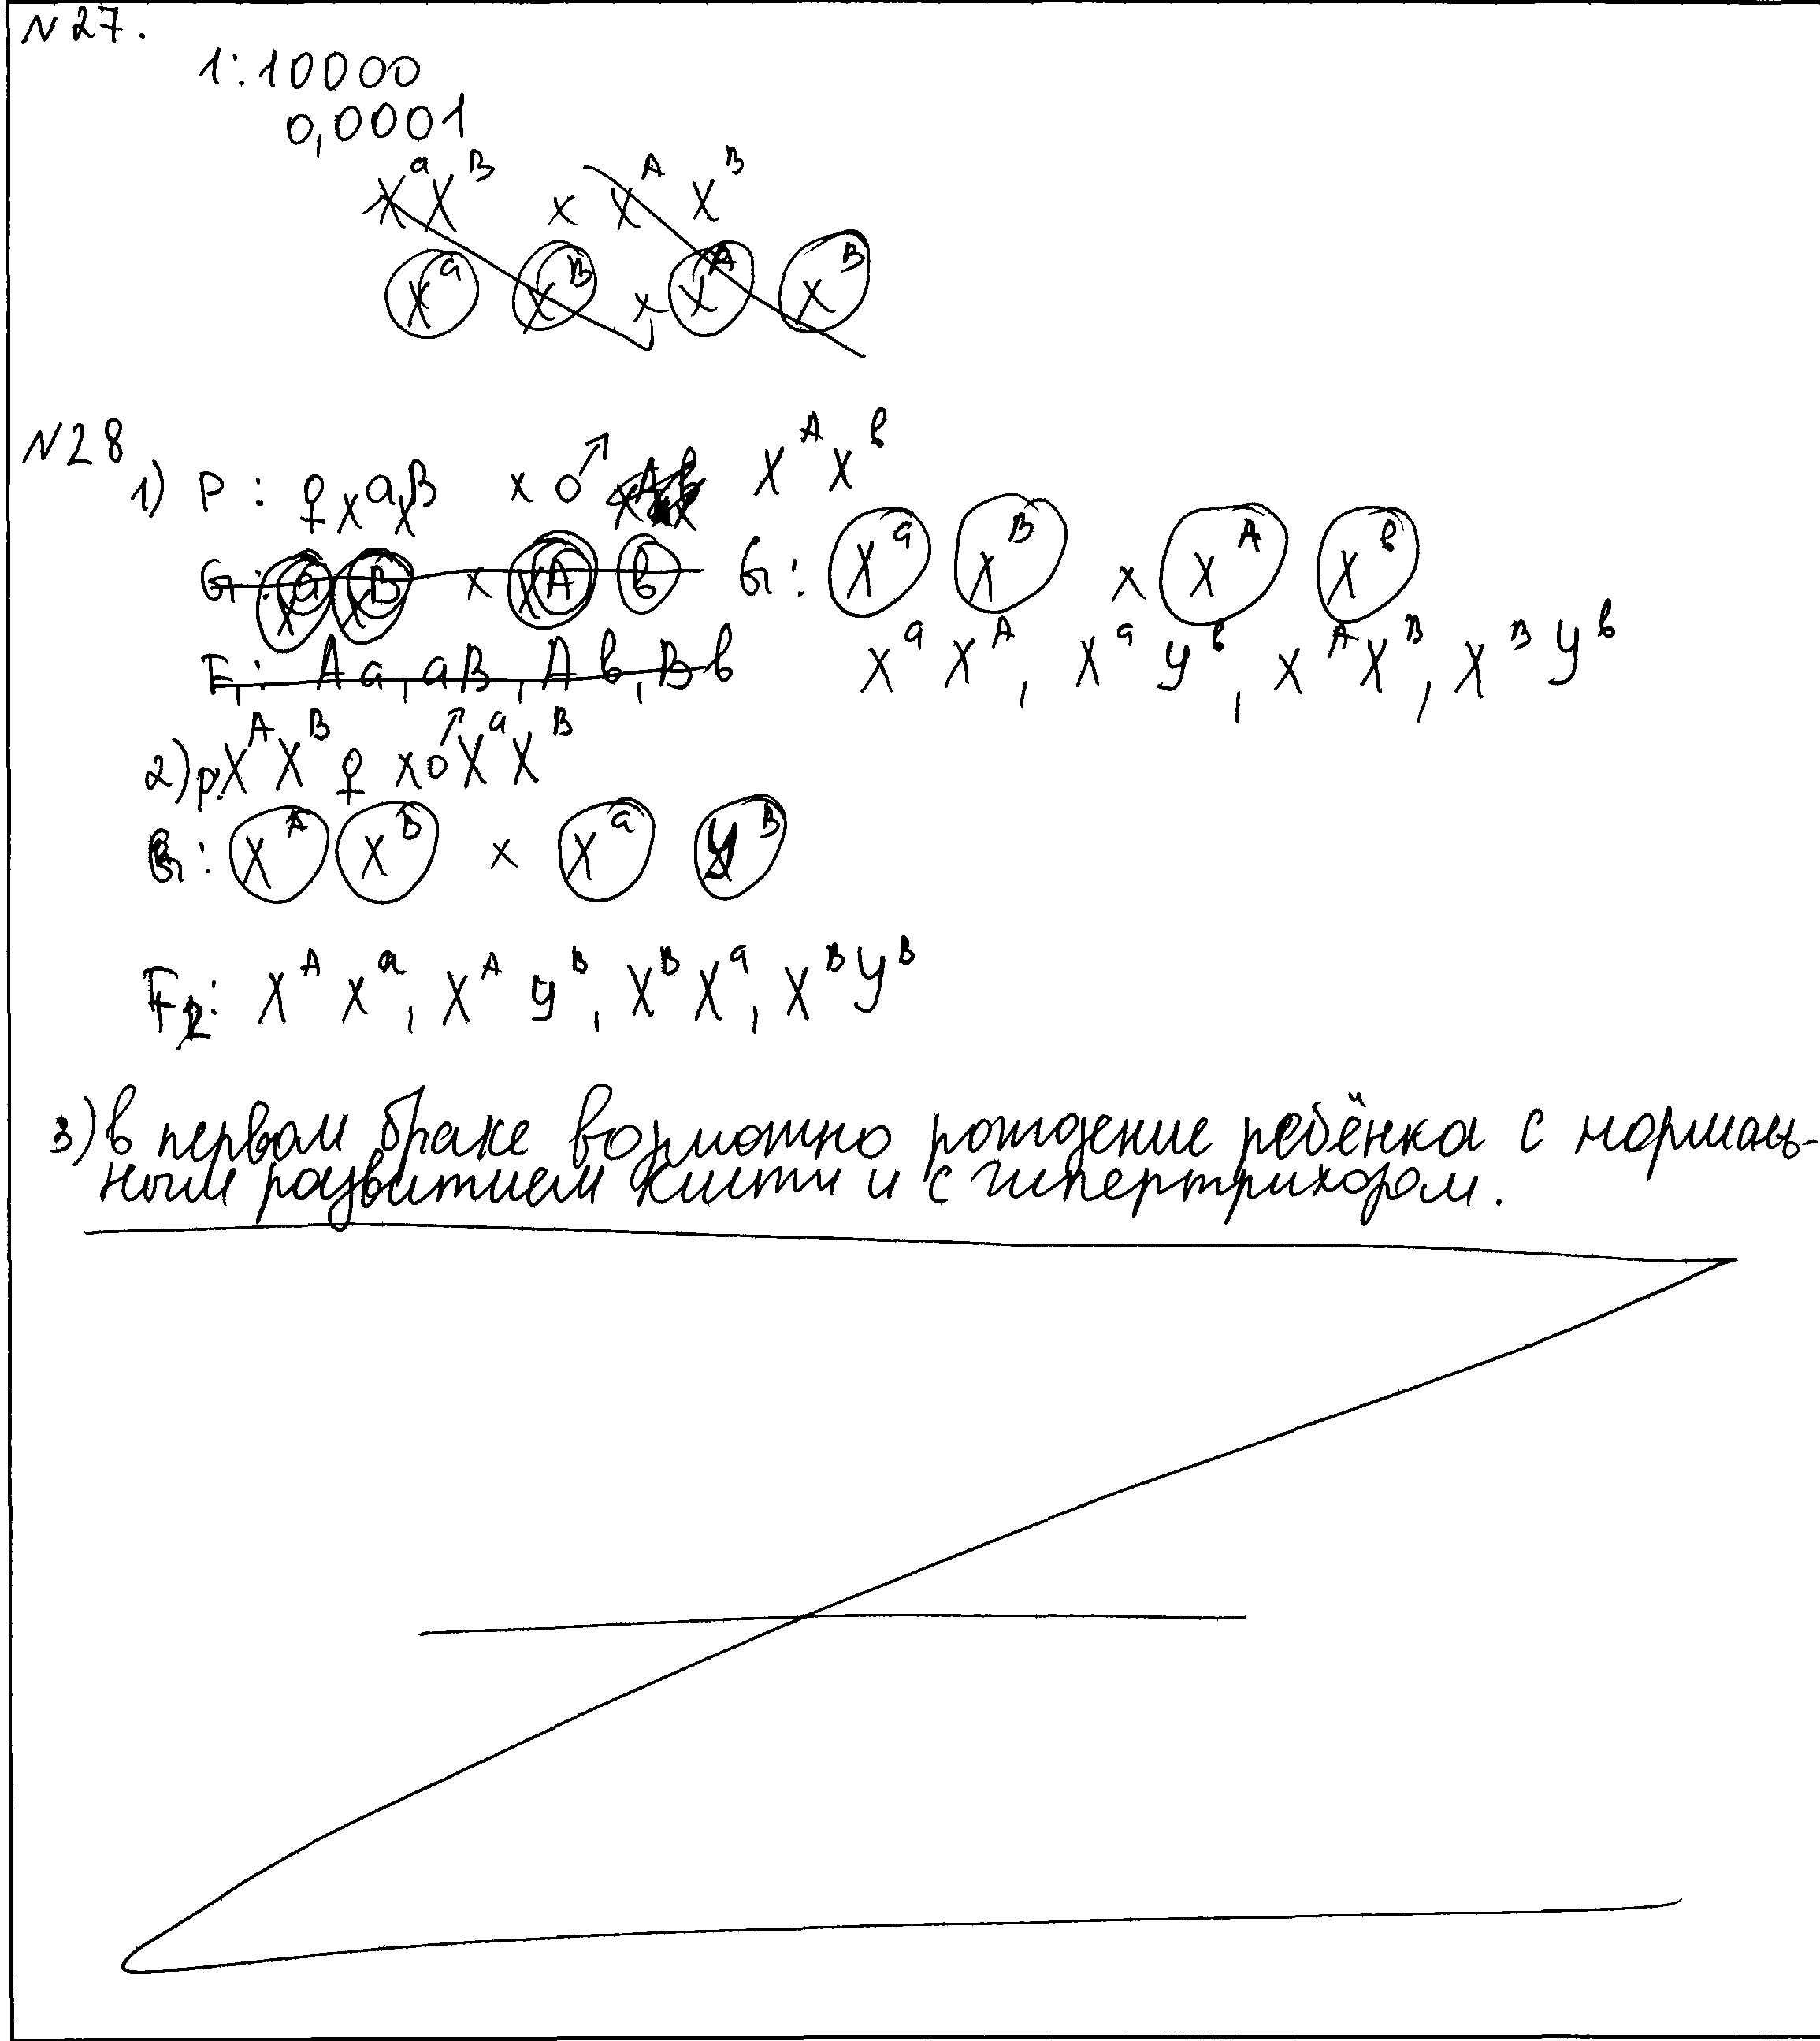 N27.
1:10000
0,0001
X^a X^B x X^A X^B
X^a X^B x X^A X^B
N28
1) P: ♀ X^a X^B x ♂ X^A X^в
G: X^a X^B x X^A в G: X^a X^B x X^A X^в
F1: Aa, aB, Aв, Bв X^a X^A, X^a У^в, X^A X^B, X^B У^в
2) p. X^A X^B ♀ x ♂ X^a X^B
G: X^A X^B x X^a У^B
F2: X^A X^a, X^A У^B, X^B X^a, X^B У^B
3) в первом браке возможно рождение ребёнка с нормаль-
ным развитием кисти и с гипертрихозом.